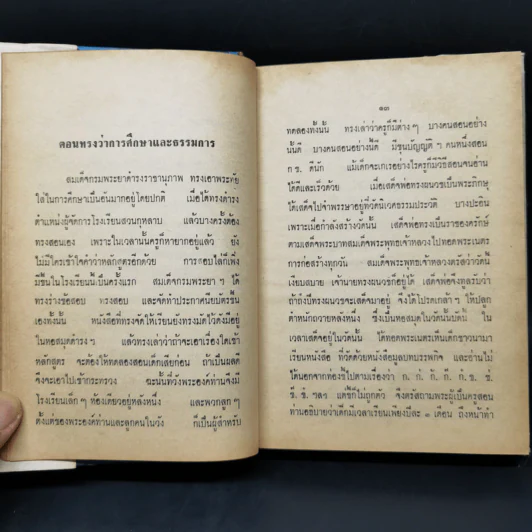 ตอนทรงว่าการศึกษาและธรรมการ
สมเด็จกรมพระยาดำรงราชานุภาพ ทรงเอาพระทัย
ใส่ในการศึกษาเป็นอันมากอยู่โดยปกติ เมื่อได้ทรงดำรง
ตำแหน่งผู้จัดการโรงเรียนสวนกุหลาบ แล้วบางครั้งต้อง
ทรงสอนเอง เพราะในเวลานั้นครูก็หายากอยู่แล้ว ยัง
ไม่มีใครเข้าใจคำว่าหลักสูตรอีกด้วย การสอบไล่ก็เพิ่ง
มีขึ้นในโรงเรียนนี้เป็นครั้งแรก สมเด็จกรมพระยา ฯ ได้
ทรงร่างข้อสอบ ทรงสอบ และจัดทำประกาศนียบัตรขึ้น
เองทั้งนั้น หนังสือที่ทรงจัดให้เรียนยังทรงมีตัวได้ดังมีอยู่
ในหอสมุดดำรง ฯ แล้วทรงเล่าว่าถ้าจะเอาเรื่องใดเข้า
หลักสูตร จะต้องให้ทดลองสอนเด็กเสียก่อน ถ้าเป็นผลดี
จึงจะเอาไปเข้ากระทรวง ฉะนั้นที่วังพระองค์ท่านจึงมี
โรงเรียนเล็ก ๆ ห้องเดียวอยู่หลังหนึ่ง และพวกลูก ๆ
ตั้งแต่ของพระองค์ท่านและลูกคนในวัง ก็เป็นผู้สำหรับ
๑๓
ทดลองทั้งนั้น ทรงเล่าว่าครูก็มีต่าง ๆ บางคนสอนอย่าง
นั้นดี บางคนสอนอย่างนี้ดี มีขุนบัญญัติ ๆ คนหนึ่งสอน
ก ข. ดีนัก แม้เด็กจะเกเรอย่างไรครูก็มีวิธีสอนจนอ่าน
ได้ดีและเร็วด้วย เมื่อเสด็จพ่อทรงผนวชเป็นพระภิกษุ
ได้เสด็จไปจำพรรษาอยู่ที่วัดนิเวศธรรมประวัติ บางปะอิน
เพราะเมื่อกำลังสร้างวัดนั้น เสด็จพ่อทรงเป็นราชองครักษ์
ตามเสด็จพระบาทสมเด็จพระพุทธเจ้าหลวงไปทอดพระเนตร
การก่อสร้างทุกวัน สมเด็จพระพุทธเจ้าหลวงตรัสว่าวัดนี้
เงียบสบาย เจ้านายทรงผนวชก็อยู่ได้ เสด็จพ่อจึงทูลรับว่า
ถ้าถึงปีทรงผนวชจะเสด็จมาอยู่ จึงได้โปรดเกล้าฯ ให้ปลูก
ตำหนักถวายหลังหนึ่ง ซึ่งเป็นหอสมุดในวัดนั้นบัดนี้ ใน
เวลาเสด็จอยู่ในวัดนั้น ได้ทอดพระเนตรเห็นเด็กชาวนามา
เรียนหนังสือ ที่วัดด้วยหนังสือมูลบทบรรพกิจ และอ่านไม่
ได้นอกจากท่องขึ้นไปตามเรื่องว่า ก. ก. ก้. ก๊. ก์. ข. ข่.
ข้. ข๊. ฯลฯ แต่ชี้ก็ไม่ถูกตัว จึงตรัสถามพระผู้เป็นครูสอน
ท่านอธิบายว่าเด็กมีเวลาเรียนเพียงปีละ ๓ เดือน ถึงหน้าทำ